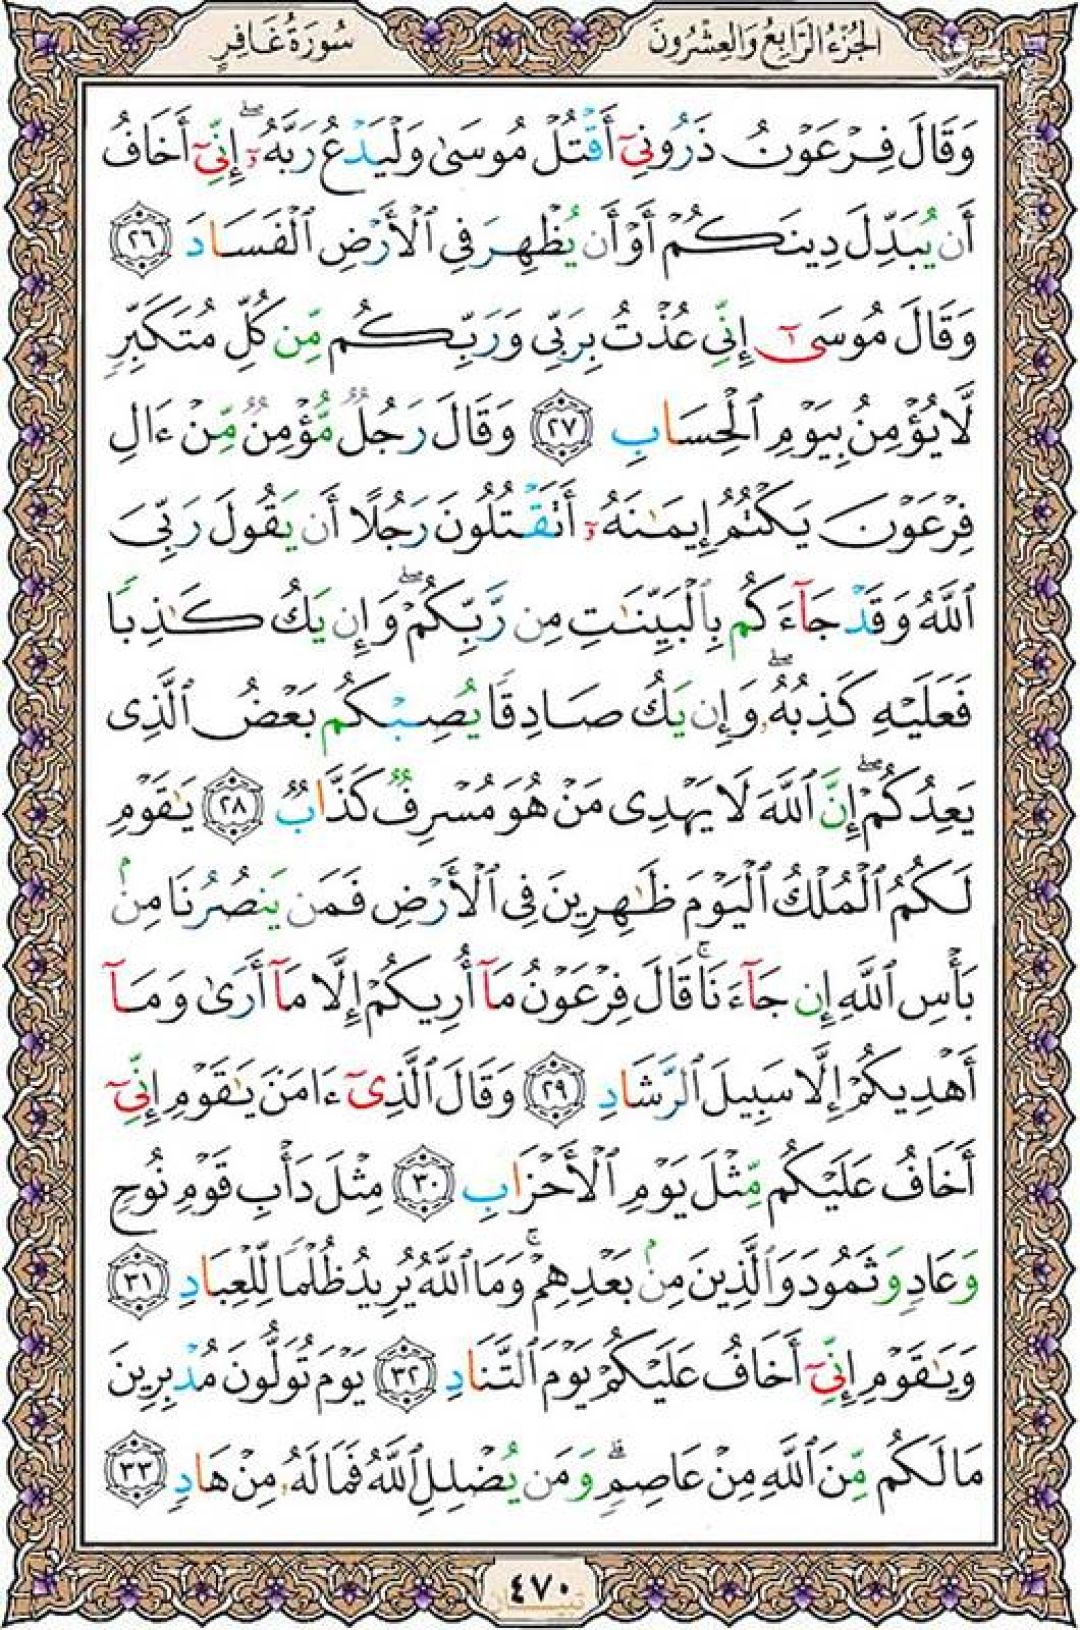 الجزء الرابع والعشرون
سورة غافر
وَقَالَ فِرْعَوْنُ ذَرُونِىٓ أَقْتُلْ مُوسَىٰ وَلْيَدْعُ رَبَّهُۥٓ ۖ إِنِّىٓ أَخَافُ
أَن يُبَدِّلَ دِينَكُمْ أَوْ أَن يُظْهِرَ فِى ٱلْأَرْضِ ٱلْفَسَادَ ﴿٢٦﴾
وَقَالَ مُوسَىٰٓ إِنِّى عُذْتُ بِرَبِّى وَرَبِّكُم مِّن كُلِّ مُتَكَبِّرٍ
لَّا يُؤْمِنُ بِيَوْمِ ٱلْحِسَابِ ﴿٢٧﴾ وَقَالَ رَجُلٌ مُّؤْمِنٌ مِّنْ ءَالِ
فِرْعَوْنَ يَكْتُمُ إِيمَـٰنَهُۥٓ أَتَقْتُلُونَ رَجُلًا أَن يَقُولَ رَبِّىَ
ٱللَّهُ وَقَدْ جَآءَكُم بِٱلْبَيِّنَـٰتِ مِن رَّبِّكُمْ ۖ وَإِن يَكُ كَـٰذِبًا
فَعَلَيْهِ كَذِبُهُۥ ۖ وَإِن يَكُ صَادِقًا يُصِبْكُم بَعْضُ ٱلَّذِى
يَعِدُكُمْ ۖ إِنَّ ٱللَّهَ لَا يَهْدِى مَنْ هُوَ مُسْرِفٌ كَذَّابٌ ﴿٢٨﴾ يَـٰقَوْمِ
لَكُمُ ٱلْمُلْكُ ٱلْيَوْمَ ظَـٰهِرِينَ فِى ٱلْأَرْضِ فَمَن يَنصُرُنَا مِنۢ
بَأْسِ ٱللَّهِ إِن جَآءَنَا ۚ قَالَ فِرْعَوْنُ مَآ أُرِيكُمْ إِلَّا مَآ أَرَىٰ وَمَآ
أَهْدِيكُمْ إِلَّا سَبِيلَ ٱلرَّشَادِ ﴿٢٩﴾ وَقَالَ ٱلَّذِىٓ ءَامَنَ يَـٰقَوْمِ إِنِّىٓ
أَخَافُ عَلَيْكُم مِّثْلَ يَوْمِ ٱلْأَحْزَابِ ﴿٣٠﴾ مِثْلَ دَأْبِ قَوْمِ نُوحٍ
وَعَادٍ وَثَمُودَ وَٱلَّذِينَ مِنۢ بَعْدِهِمْ ۚ وَمَا ٱللَّهُ يُرِيدُ ظُلْمًا لِّلْعِبَادِ ﴿٣١﴾
وَيَـٰقَوْمِ إِنِّىٓ أَخَافُ عَلَيْكُمْ يَوْمَ ٱلتَّنَادِ ﴿٣٢﴾ يَوْمَ تُوَلُّونَ مُدْبِرِينَ
مَا لَكُم مِّنَ ٱللَّهِ مِنْ عَاصِمٍ ۗ وَمَن يُضْلِلِ ٱللَّهُ فَمَا لَهُۥ مِنْ هَادٍ ﴿٣٣﴾
٤٧٠
تبيان